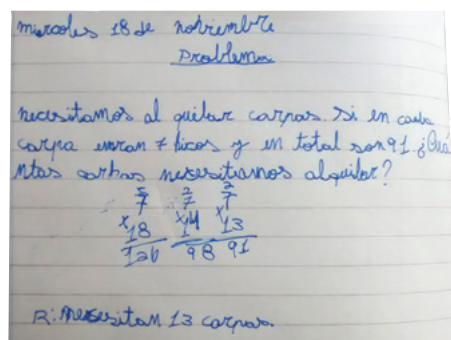 miercoles 18 de nobiembre
Problema
necesitamos al quilar carpas. Si en cada
carpa entran 7 chicos y en total son 91. ¿Cuá
ntas carpas necesitamos alquilar?
5 2 2
7 7 7
x18 x14 x13
126 98 91
R: necesitan 13 carpas.